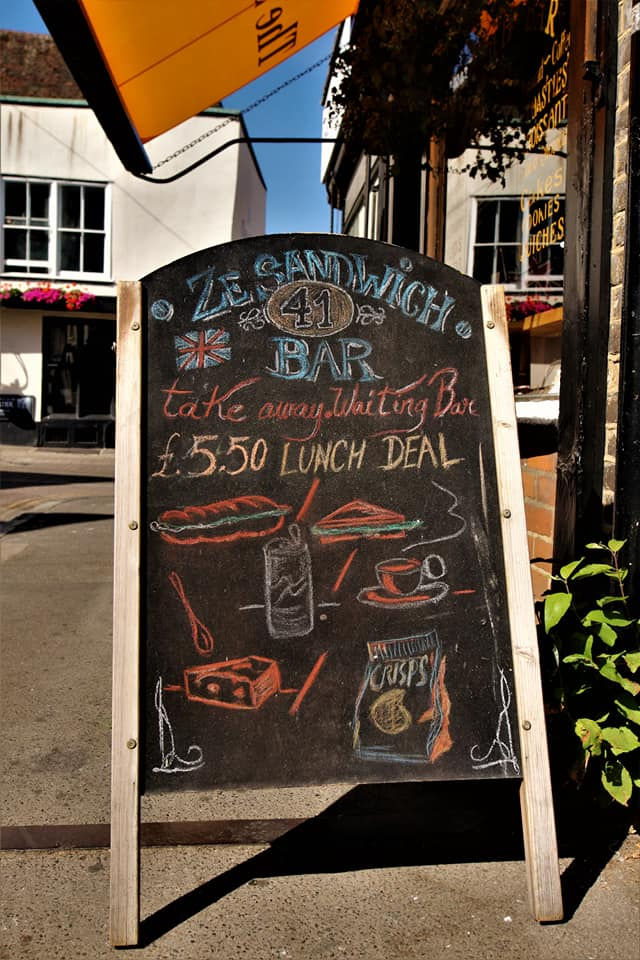 ZE SANDWICH
41
BAR
take away. Waiting Bar
£5.50 LUNCH DEAL
CRISPS
Cakes